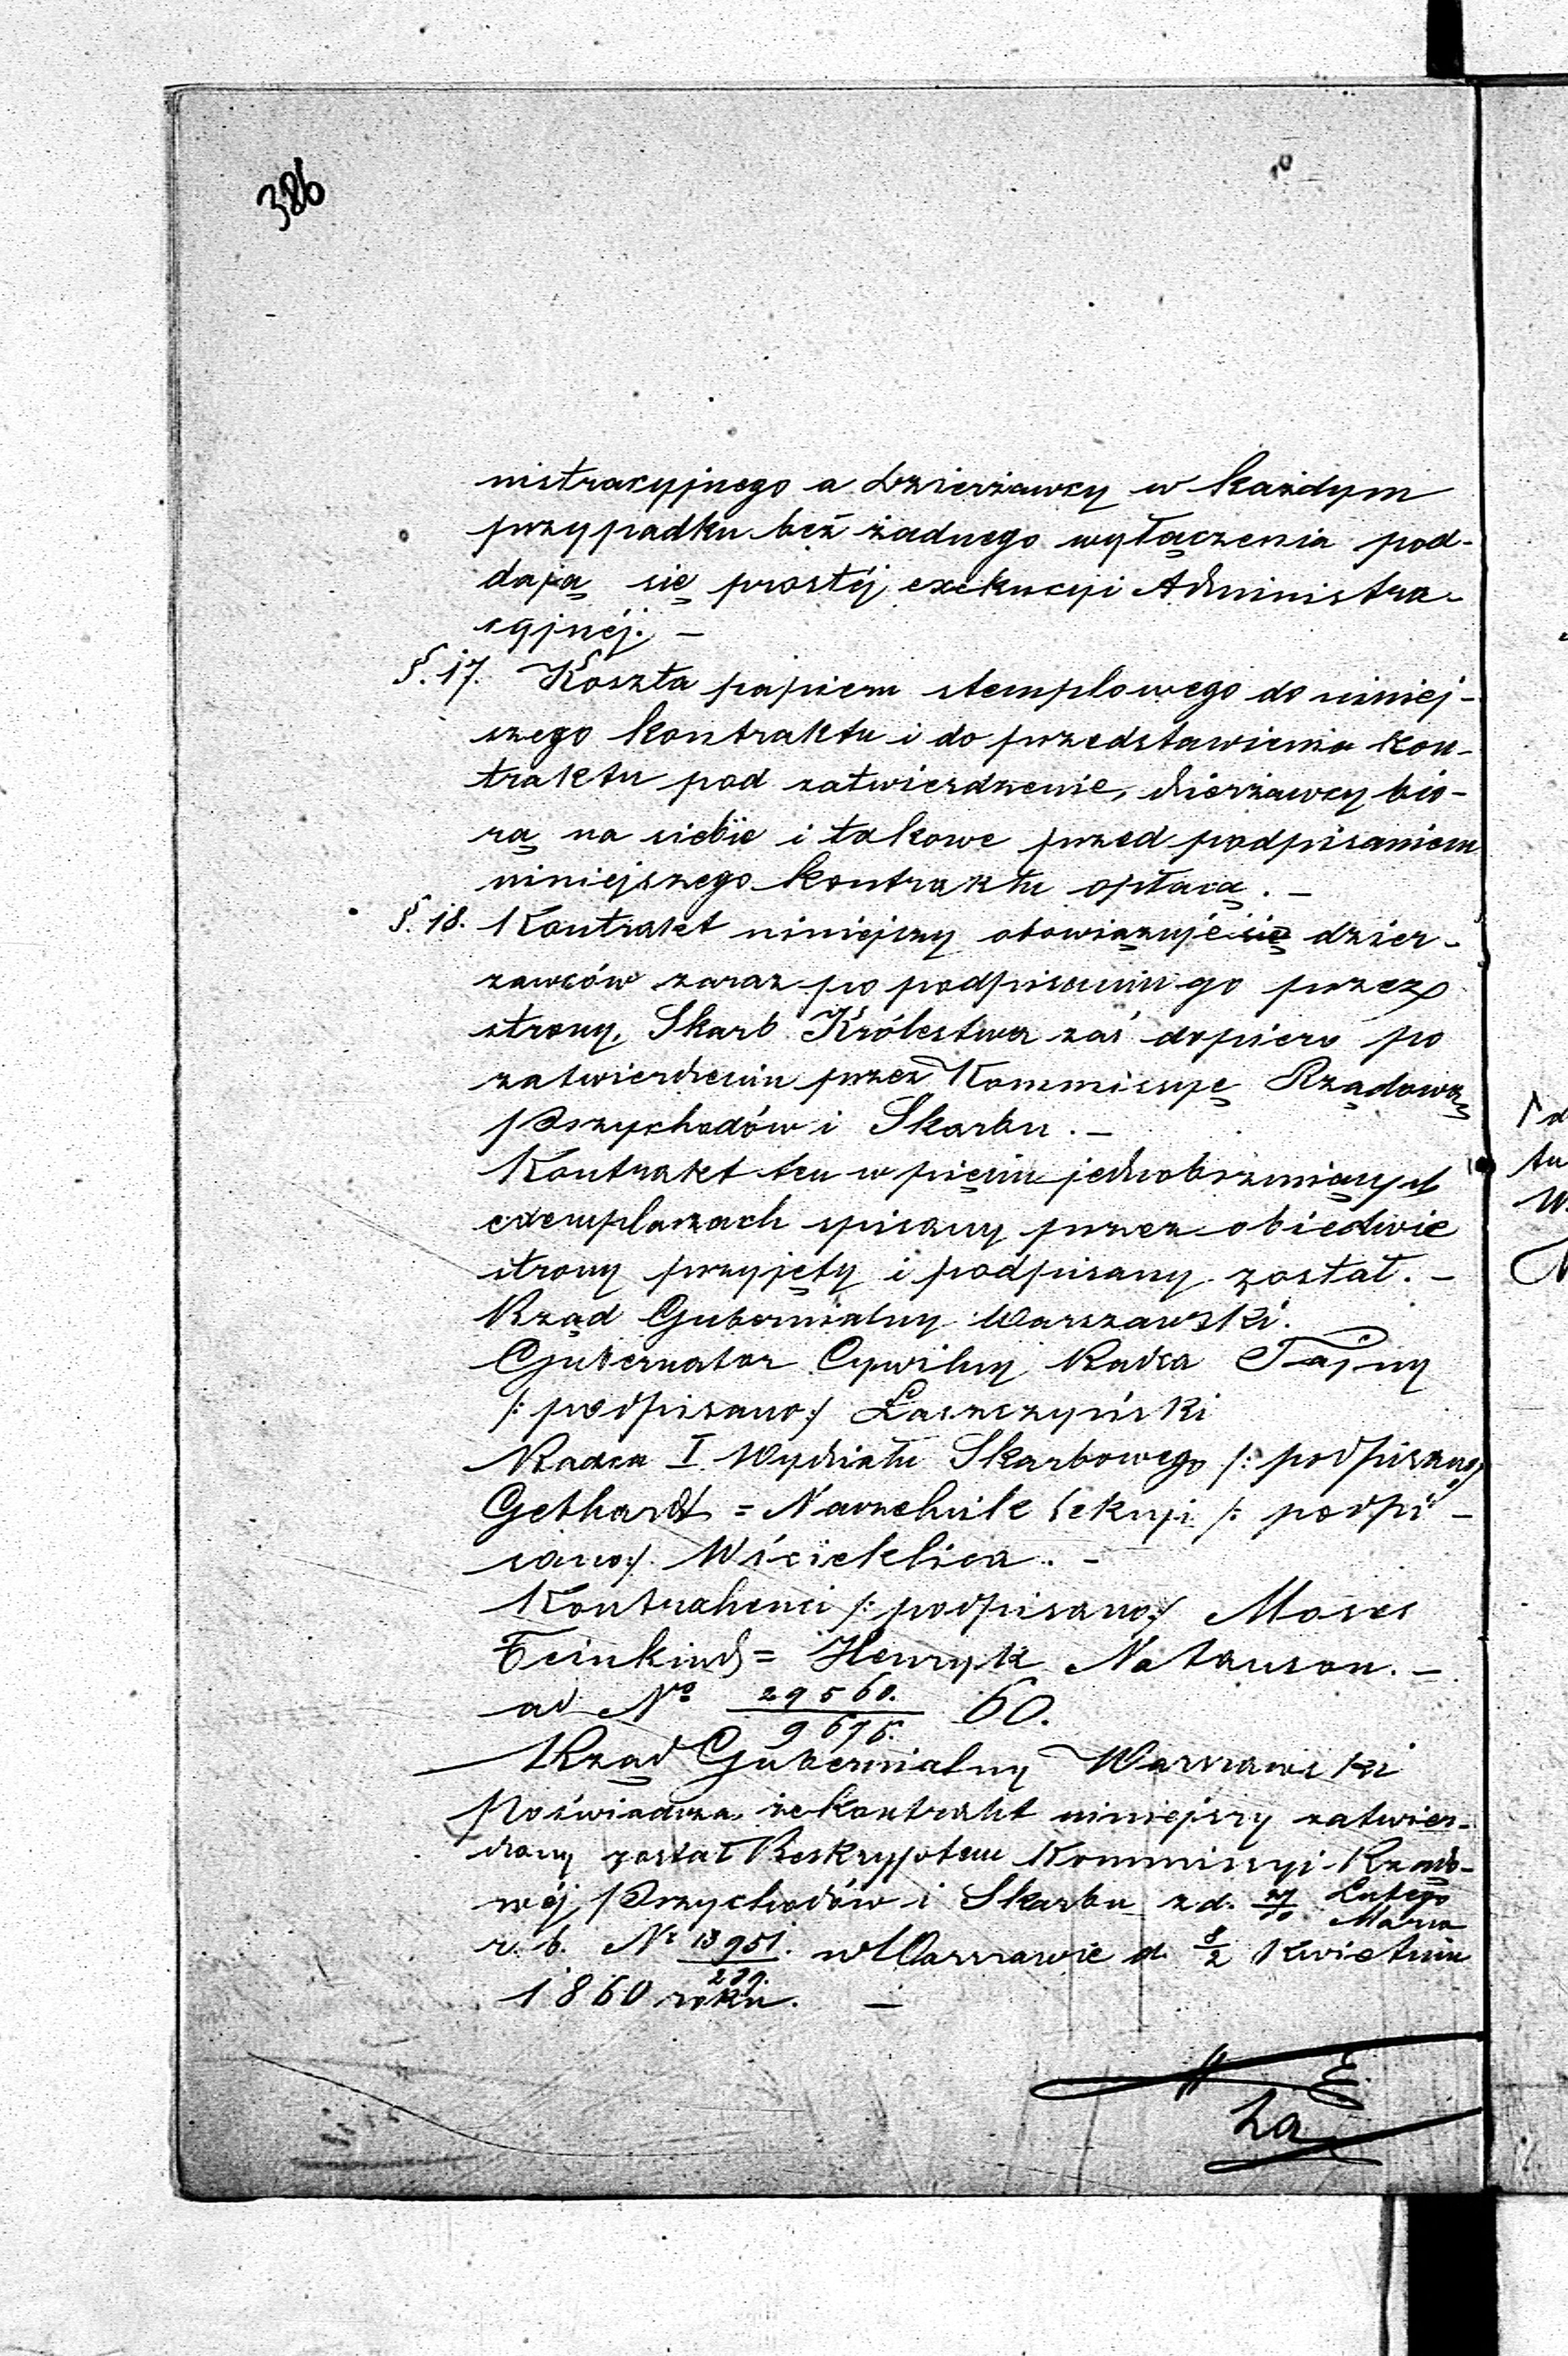 386
nistracyjnego a Dzierżawcy w każdym
przypadku bez żadnego wyłączenia pod-
dają się prostéj exekucyi Administra-
cyjnéj. —
§. 17. Koszta papieru stemplowego do niniej-
szego kontraktu i do przedstawienia kon-
traktu pod zatwierdzenie, dzierżawcy bio-
rą na siebie i takowe przed podpisaniem
niniejszego kontraktu opłacą. —
§. 18. Kontrakt niniejszy obowiązuje się dzier-
żawców zaraz po podpisaniu go przez
strony, Skarb Królestwa zaś dopiero po
zatwierdzeniu przez Kommissyę Rządową
Przychodów i Skarbu. —
Kontrakt ten w pięciu jednobrzmiących
exemplarzach spisany przez obiedwie
strony przyjęty i podpisany został. —
Rząd Gubernialny Warszawski.
Gubernator Cywilny Radca Tajny
/: podpisano :/ Łaszczyński
Radca I Wydziału Skarbowego /: podpisano :/
Gebhardt = Naczelnik Sekcyi /: podpi-
sano :/ Wścieklica. —
Kontrahenci /: podpisano :/ Moses
Feinkind = Henryk Natanson. —
ad No 29560./9675. 60.
Rząd Gubernialny Warszawski
Poświadcza że kontrakt niniejszy zatwier-
dzony został Reskryptem Kommissyi Rządo-
wéj Przychodów i Skarbu z d. 27/10 Lutego/Marca
r. b. Nr 13951./239. w Warszawie d. 8/2 Kwietnia
1860 roku. —
Za